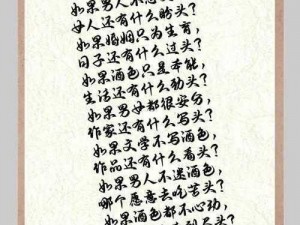 如果男人不
女人还有什么盼头?
如果婚姻只为生育,
日子还有什么过头?
如果酒色只是本能,
生活还有什么劲头?
如果男女都很安分,
作家还有什么写头?
如果文学不写酒色,
作品还有什么看头?
如果男人不迷酒色,
哪个愿意去吃苦头?
如果酒色都不心动,
头?